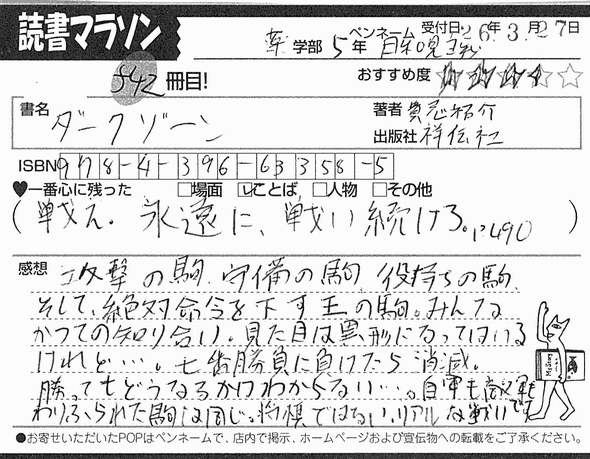 読書マラソン
受付日:26年3月27日
薬学部5年 ペンネーム
542冊目!
おすすめ度 ☆☆☆☆☆
書名 ダークゾーン
著者 貴志祐介
出版社 祥伝社
ISBN 978-4-396-63358-5
♥一番心に残った □場面 ☑ことば □人物 □その他
(戦え。永遠に、戦い続けろ。P.490)
感想 攻撃の駒 守備の駒 役持ちの駒
そして、絶対命令を下す王の駒。みんな
かつての知り合い。見た目は異形になってはいる
けれど…。七番勝負に負けたら消滅。
勝ってもどうなるかはわからない…。自軍も敵軍も
わりふられた駒は同じ。将棋ではない、リアルな戦いです
●お寄せいただいたPOPはペンネームで、店内で掲示、ホームページおよび宣伝物への転載をご了承ください。